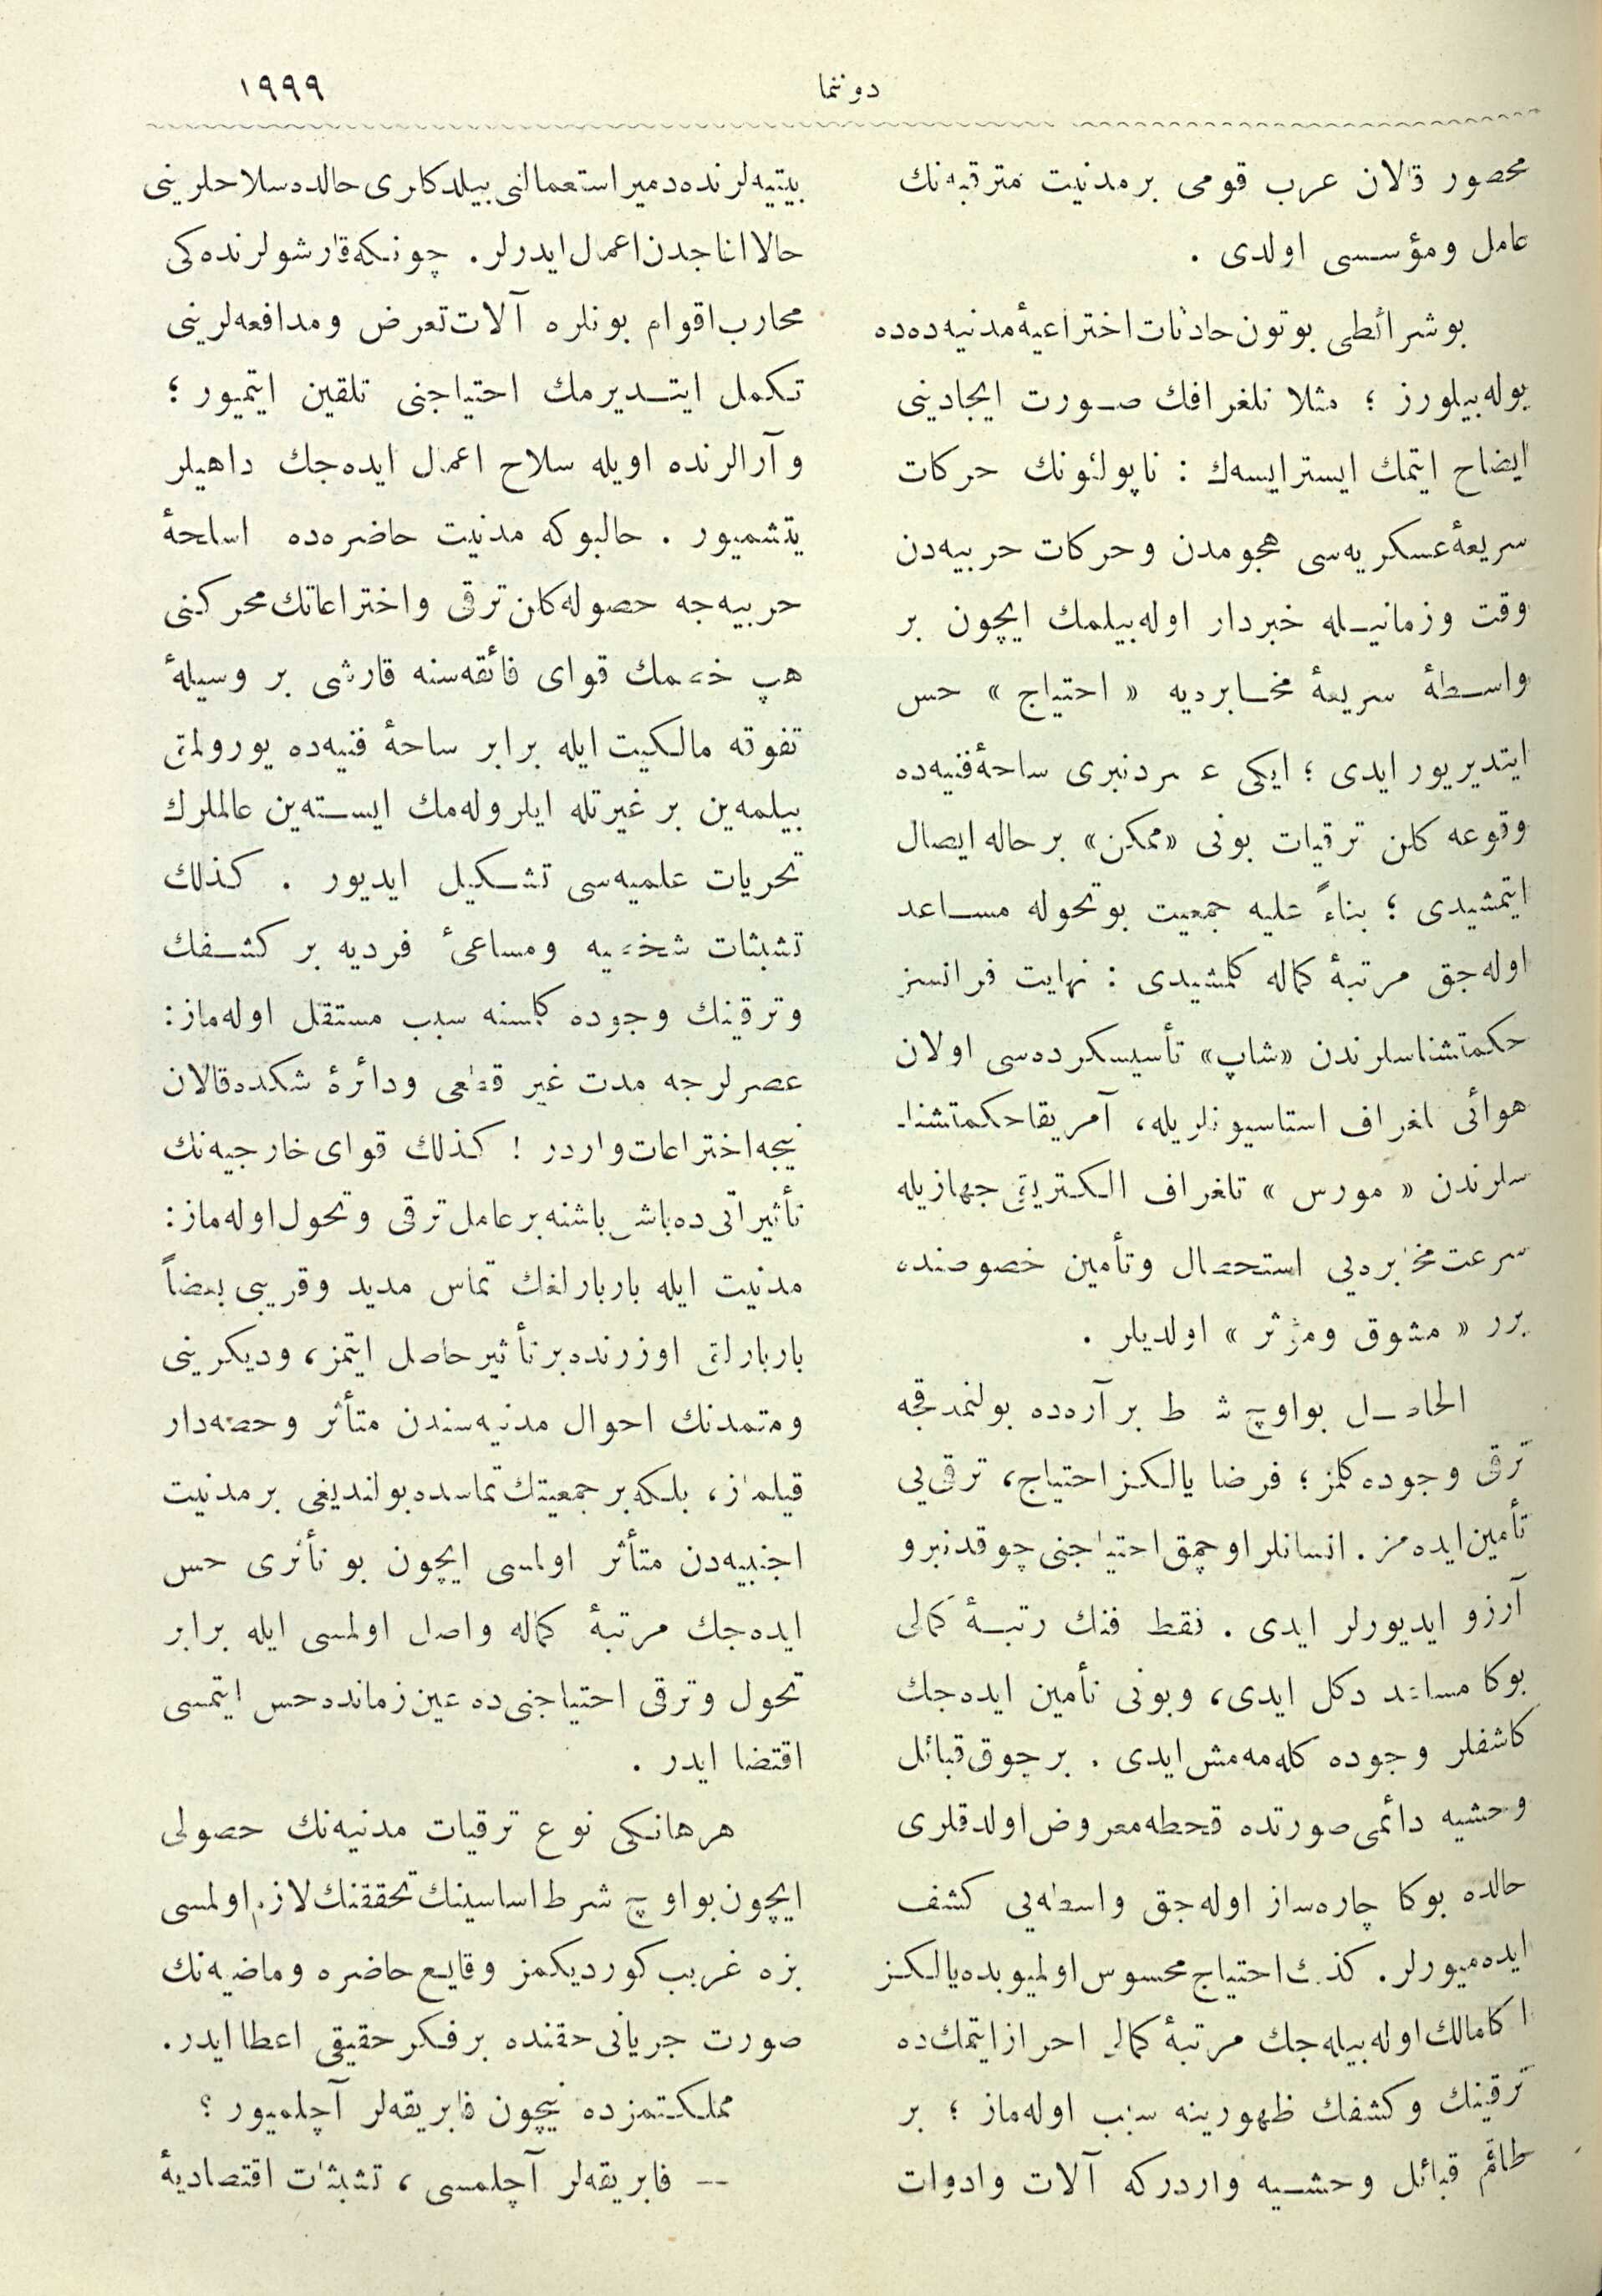 دوننما
١٩٩٩
محصور قالان عرب قومی بر مدنیت مترقیه‌نك
عامل ومؤسسی اولدی .
بو شرائطی بوتون حادثات اختراعیۀ مدنیه‌ده ده
بوله بیلورز ؛ مثلا تلغرافك صورت ایجادینی
ایضاح ایتمك ایسترایسه‌ك : ناپولئونك حرکات
سریعۀ عسکریه‌سی هجومدن وحرکات حربیه‌دن
وقت وزمانیله خبردار اوله بیلمك ایچون بر
واسطۀ سریعۀ مخابردیه « احتیاج » حس
ایتدیریور ایدی ؛ ایکی عصردنبری ساحۀ فنیه‌ده
وقوعه کلن ترقیات بونی «ممکن» برحاله ایصال
ایتمشیدی ؛ بناءً علیه جمعیت بوتحوله مساعد
اوله‌جق مرتبۀ کماله کلمشیدی : نهایت فرانسز
حکمتشناسلرندن «شاپ» تأسیسکرده‌سی اولان
هوائی تلغراف استاسیونلریله، آمریقا حکمتشنا-
سلرندن « مورس » تلغراف الکتریقی جهازیله
سرعت مخابره‌یی استحصال وتأمین خصوصنده
برر « مشوق ومؤثر » اولدیلر .
الحاصل بو اوچ شرط بر آره‌ده بولنمدقجه
ترقی وجوده کلمز ؛ فرضا یالکز احتیاج، ترقی‌یی
تأمین ایده‌مز . انسانلر اوچمق احتیاجنی چوقدنبرو
آرزو ایدیورلر ایدی . فقط فنك رتبۀ کمالی
بوکا مساعد دکل ایدی، وبونی تأمین ایده‌جك
کاشفلر وجوده کله‌مه‌مش ایدی . برچوق قبائل
وحشیه دائمی صورتده قحطه معروض اولدقلری
حالده بوکا چاره‌ساز اوله‌جق واسطه‌یی کشف
ایده‌میورلر . کذلك احتیاج محسوس اولمیوبده یالکز
اکا مالك اوله بیله‌جك مرتبۀ کمالی احراز ایتمك ده
ترقینك وکشفك ظهورینه سبب اوله‌ماز ؛ بر
طاقم قبائل وحشیه واردرکه آلات وادوات
بیتیه‌لرنده دمیر استعمالنی بیلدکاری حالده سلاحلرینی
حالا اغاجدن اعمال ایدرلر . چونکه قارشولرنده‌کی
محارب اقوام بونلره آلات تعرض ومدافعه‌لرینی
تکمل ایتدیرمك احتیاجنی تلقین ایتمیور ؛
وآرالرنده اویله سلاح اعمال ایده‌جك داهیلر
یتشمیور . حالبوکه مدنیت حاضره‌ده اسلحۀ
حربیه‌جه حصوله کلن ترقی واختراعاتك محرکنی
هپ خصمك قوای فائقه‌سنه قارشی بر وسیلۀ
تفوقه مالکیت ایله برابر ساحۀ فنیه‌ده یورولمق
بیلمه‌ین بر غیرتله ایلروله‌مك ایسته‌ین عالملرك
تحریات علمیه‌سی تشکیل ایدیور . کذلك
تشبثات شخصیه ومساعیٔ فردیه بر کشفك
وترقینك وجوده کلمسنه سبب مستقل اوله‌ماز :
عصرلرجه مدت غیر قطعی ودائرۀ شکده قالان
نیجه اختراعات واردر ! کذلك قوای خارجیه‌نك
تأثیراتی ده باش باشنه بر عامل ترقی وتحول اوله‌ماز :
مدنیت ایله باربارلغك تماس مدید وقریبی بعضاً
باربارلق اوزرنده بر تأثیر حاصل ایتمز، ودیکرینی
ومتمدنك احوال مدنیه‌سندن متأثر وحصه‌دار
قیلماز، بلکه بر جمعیتك تماسده بولندیغی بر مدنیت
اجنبیه‌دن متأثر اولمسی ایچون بو تأثری حس
ایده‌جك مرتبۀ کماله واصل اولمسی ایله برابر
تحول وترقی احتیاجنی ده عین زمانده حس ایتمسی
اقتضا ایدر .
هر هانکی نوع ترقیات مدنیه‌نك حصولی
ایچون بو اوچ شرط اساسینك تحققنك لازم اولمسی
بزه غریب کوردیکمز وقایع حاضره وماضیه‌نك
صورت جریانی حقنده بر فکر حقیقی اعطا ایدر.
مملکتمزده نیچون فابریقه‌لر آچلمیور ؟
-- فابریقه‌لر آچلمسی ، تشبثات اقتصادیۀ